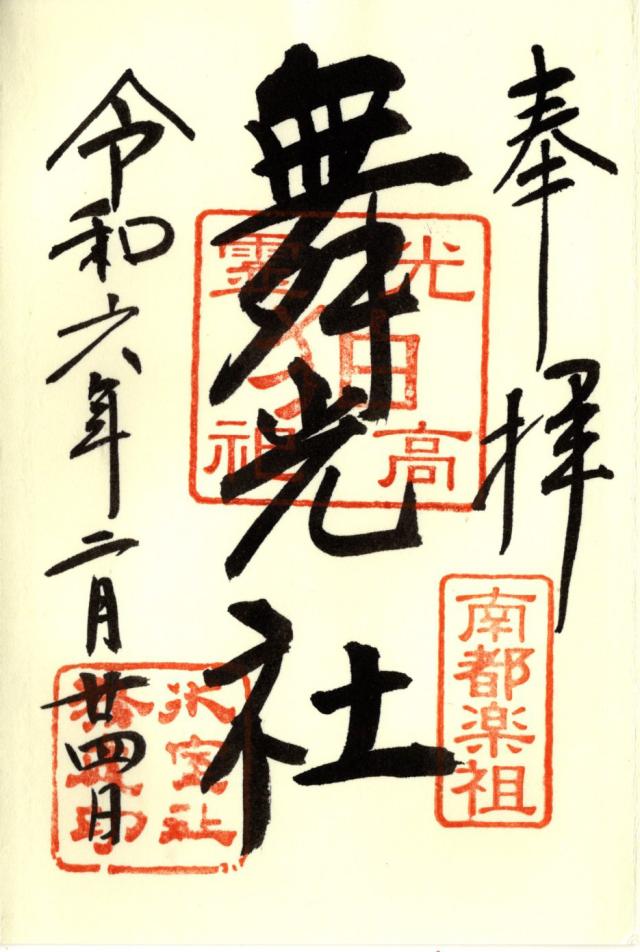 奉拝
舞光社
令和六年二月廿四日
南都楽祖
光
高
霊
祖
氷室社